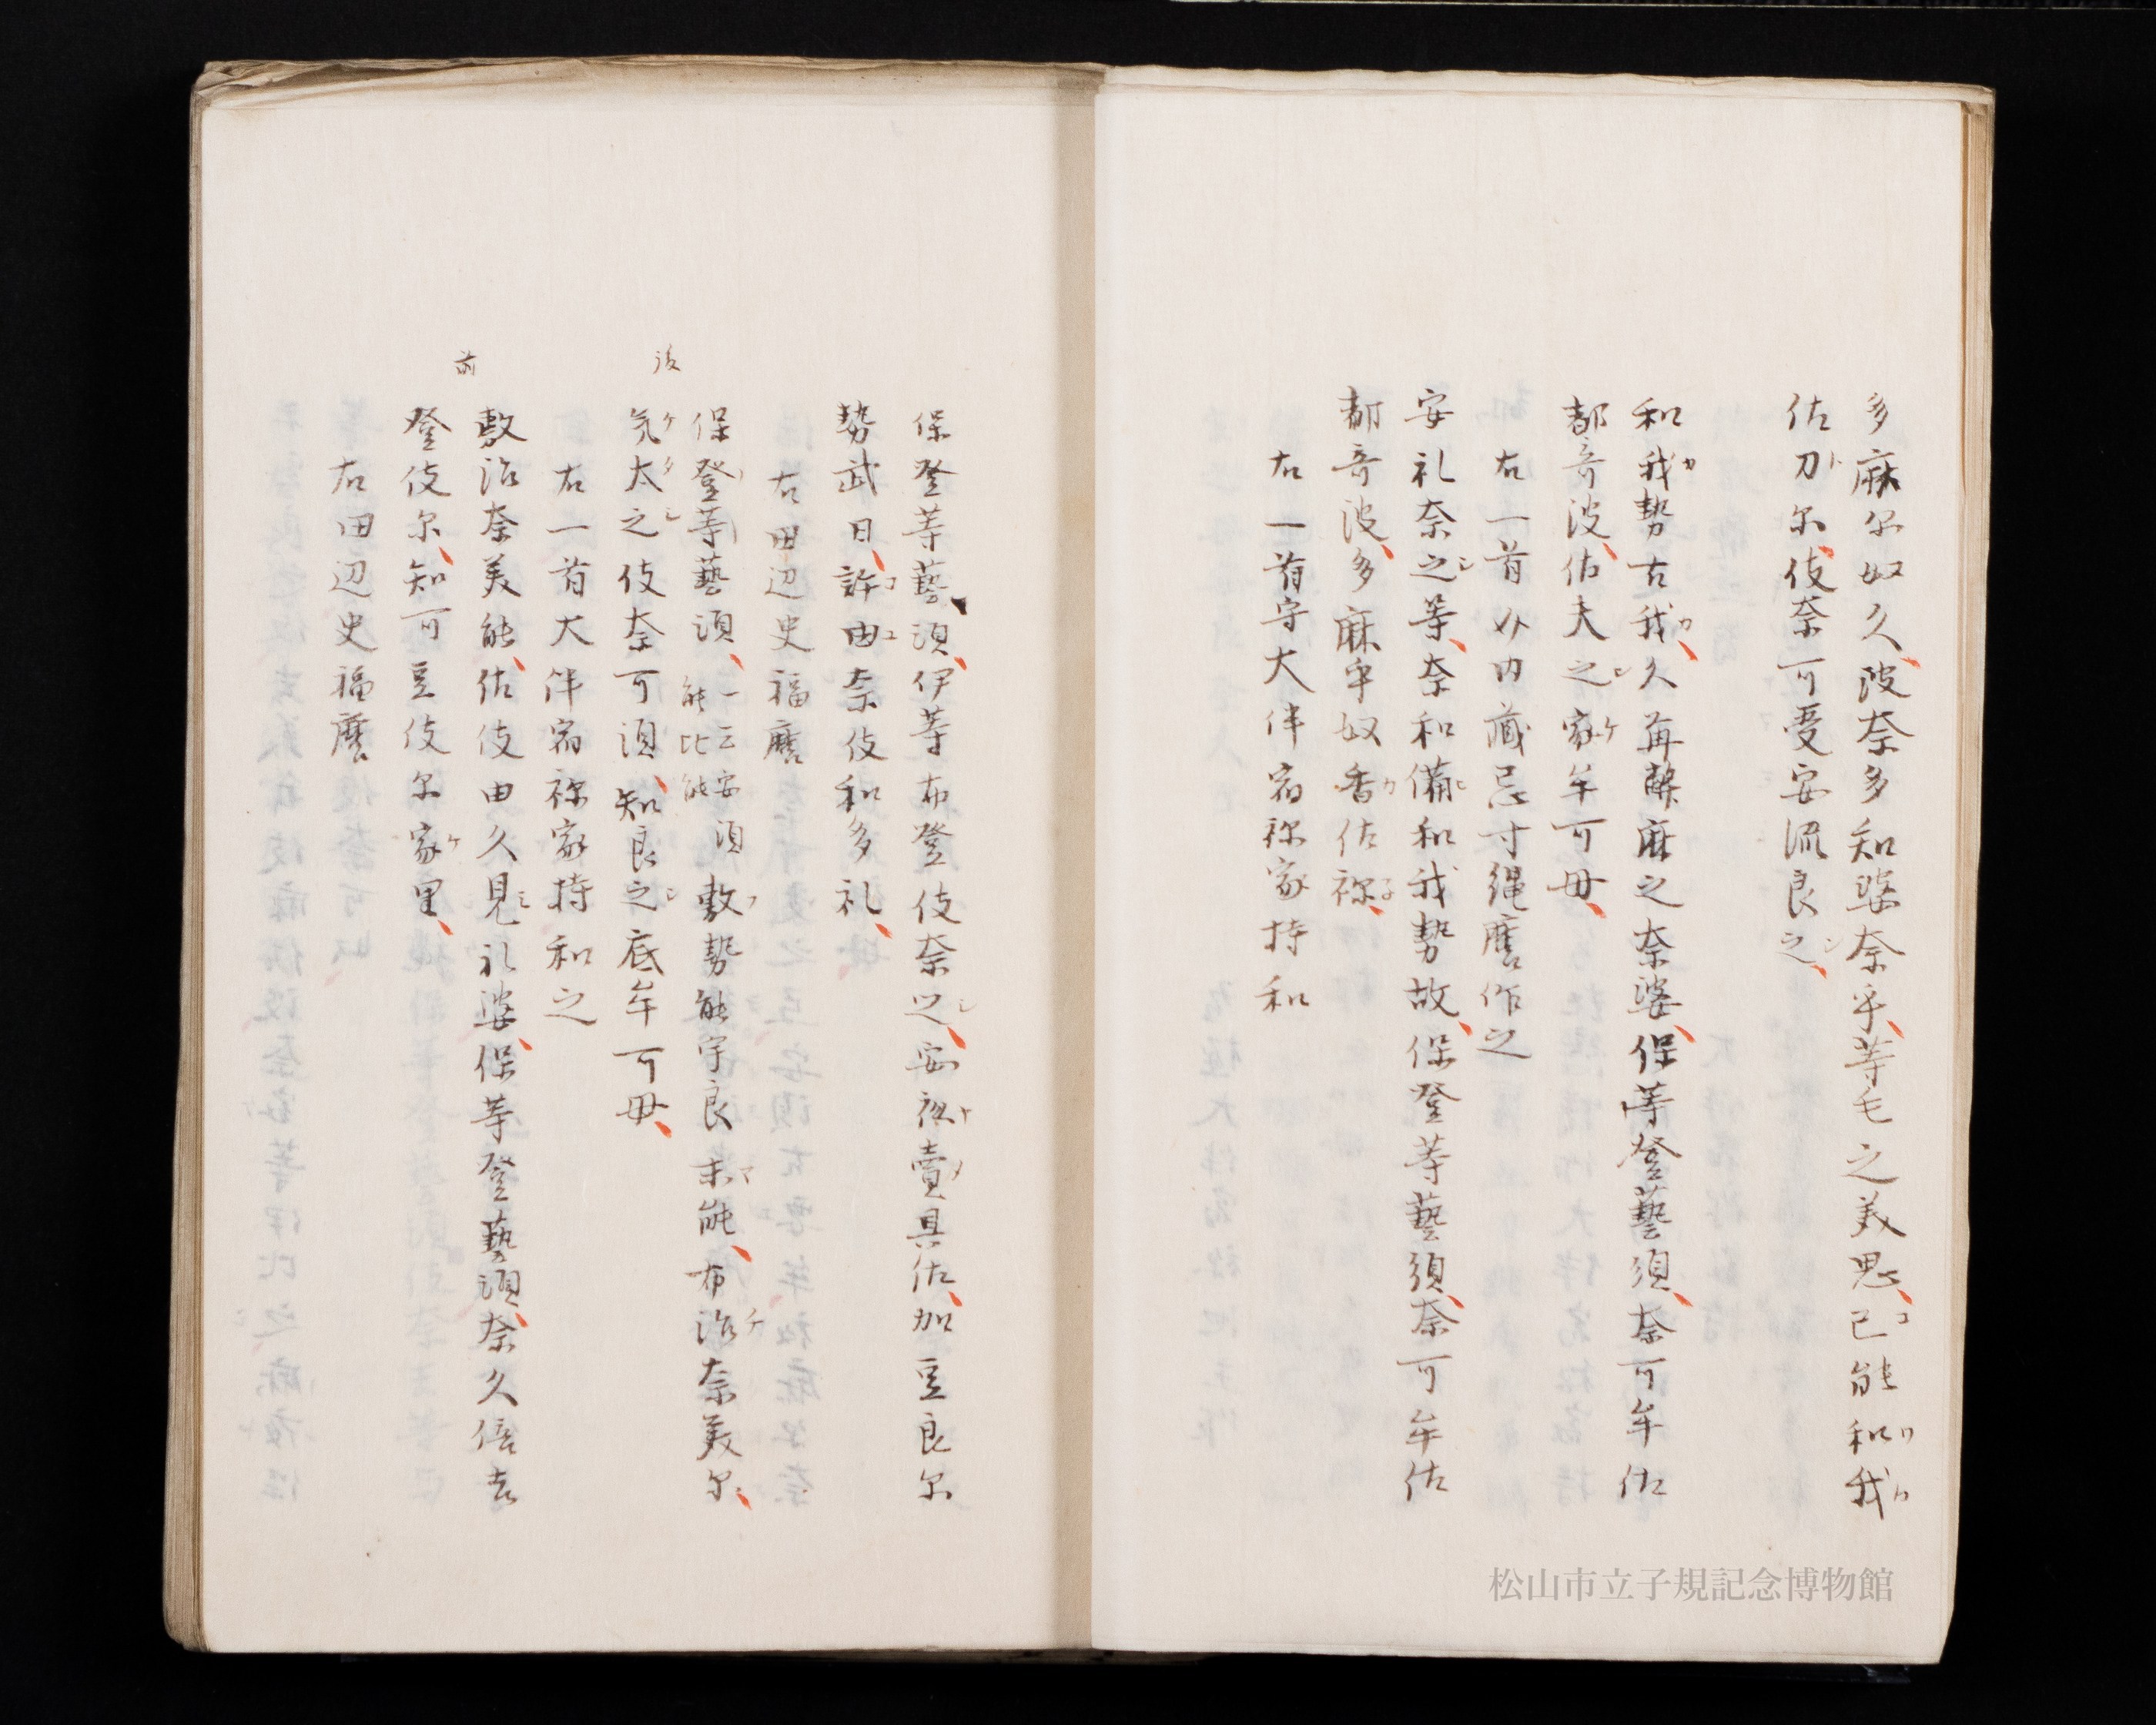 多麻尔奴久波奈多知婆奈乎等毛之美思己能和我
佐刀尔伎奈可受安流良之
和我勢古我久尓麻之奈婆保等登藝須奈可牟佐
都奇波佐夫之家牟可母
右一首介内藏忌寸縄麿作之
安礼奈之等奈和備和我勢故保登等藝須奈可牟佐
都奇波多麻乎奴香佐祢
右一首守大伴宿祢家持和
保登等藝須伊等布登伎奈之安夜賣具佐加豆良尔
勢武日許由奈伎和多礼
右田辺史福麿
後
保登等藝須一云安須能比能敷勢能宇良末能布治奈美尔
気太之伎奈可須知良之底牟可母
右一首大伴宿祢家持和之
前
敷治奈美能佐伎由久見礼婆保等登藝須奈久倍吉
登伎尔知可豆伎尔家里
右田辺史福麿
松山市立子規記念博物館